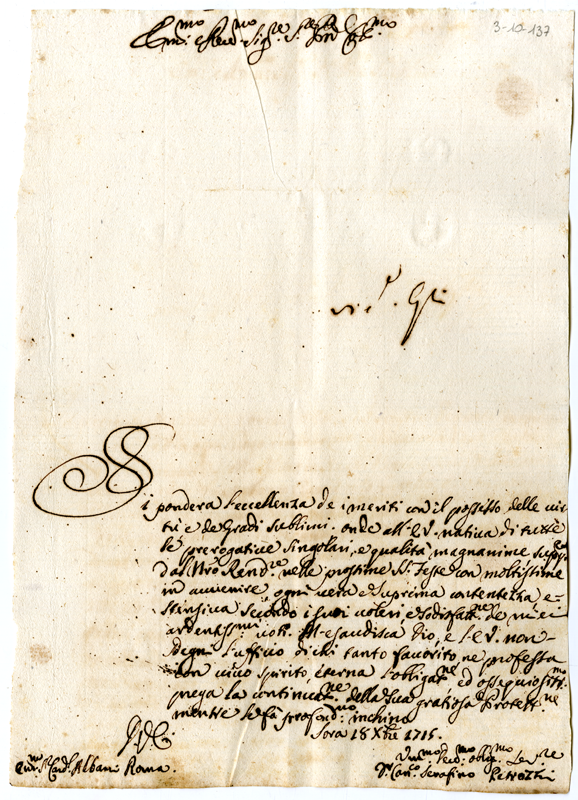 3-10-137
Em.mo e Rev.mo Sig.re
Si pondera l'eccellenza de i meriti con il possesso delle vir-
tù e de Gradi sublimi. onde all'E.V. nativa di tutte
le prerogative singolari, e qualità magnanime
dal Nro Redre nelle prossime SS. Feste con moltissime
in avvenire ogni vera e suprema contentezza e-
stensiva secondo i suoi voleri, e sodisfatt.ne de miei
ardentiss.mi voti. M'esaudisca Dio, e l'E.V. non
sdegni l'uffizio di chi tanto favorito ne professa
con vivo spirito, eterna l'obligat.ne ed ossequiosiss.mo
prega la continuat.ne della sua gratiosa Protett.ne
mentre le fà profond.mo inchino
Sora 18 Xbre 1715.
Em.mo Card. Albani Roma.
Serafino Petrozzi